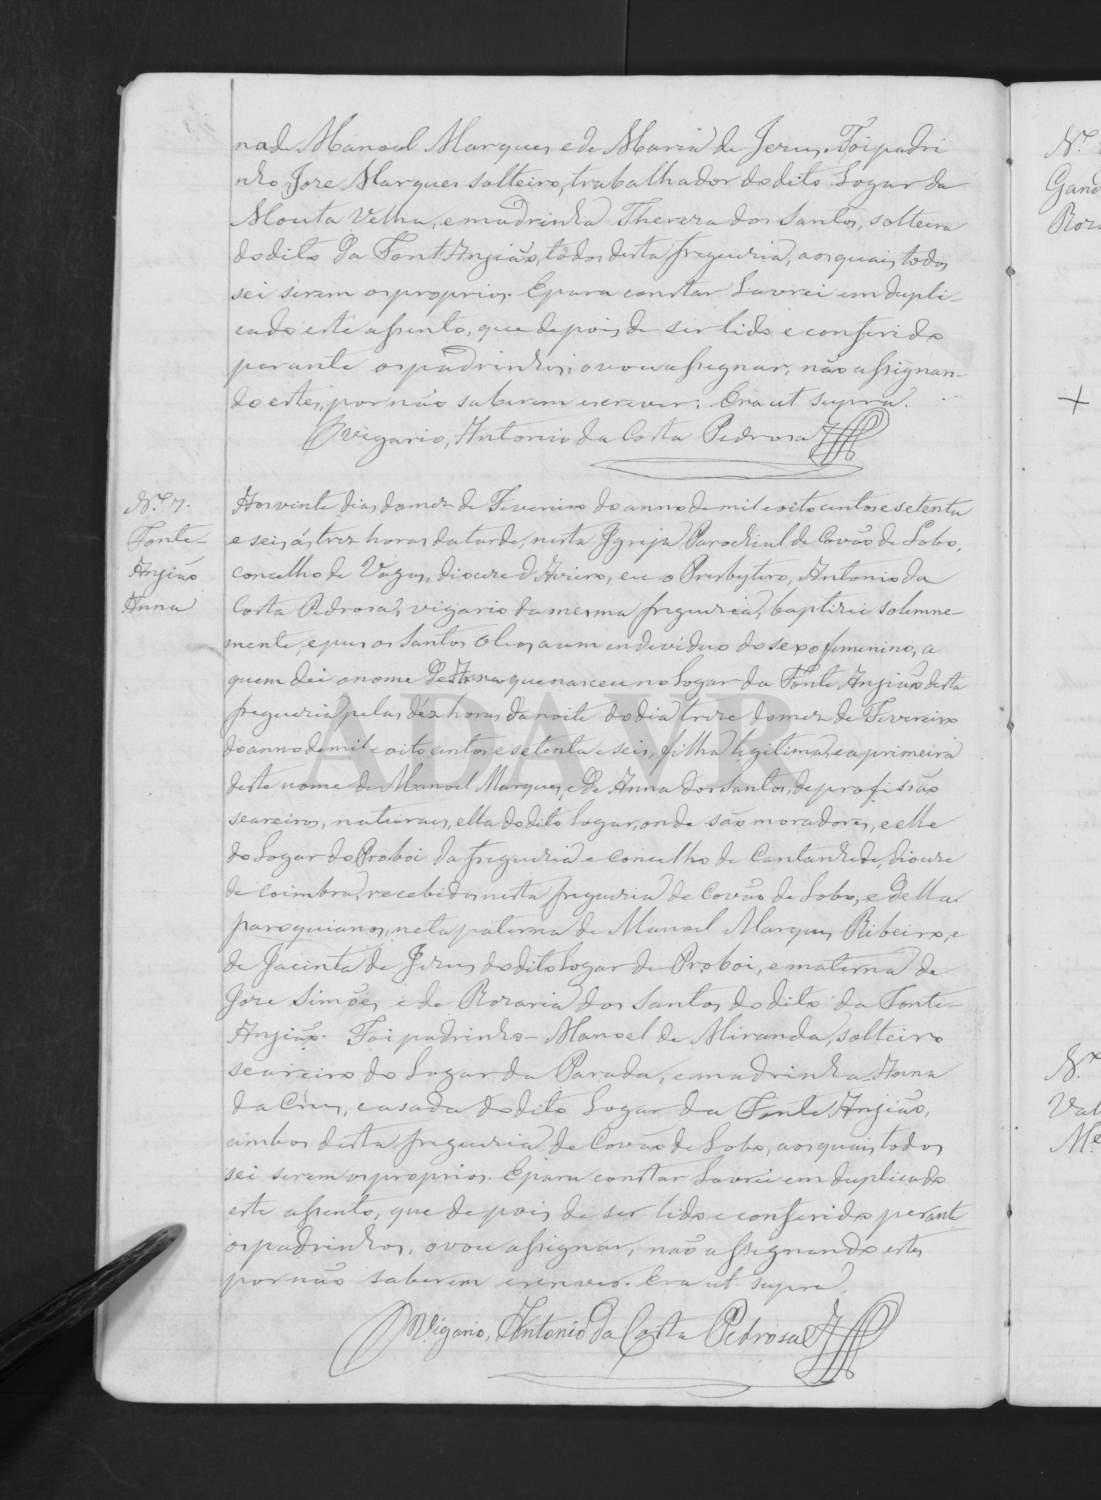 na de Manoel Marques, e de Maria de Jesus. Foi padri
nho Jose Marques solteiro, trabalhador do dito Logar da
Mouta Velha, e madrinha Thereza dos Santos, solteira
do dito da Font'Anjião, todos desta freguezia, aos quaes todos
sei serem os proprios. E para constar lavrei em dupli-
cado este assento, que depois de ser lido e conferido
perante os padrinhos, o vou assignar, não assignan-
do estes, por não saberem escrever. Era ut supra.
O Vigario, Antonio da Costa Pedrosa
Nº 7.
Fonte-
Anjião
Anna
Aos vinte dias do mez de Fevereiro do anno de mil e oito centos e setenta
e seis, ás trez horas da tarde, nesta Igreja Parochial de Covão do Lobo,
concelho de Vagos, diocese d'Aveiro, eu o Presbytero, Antonio da
Costa Pedrosa, vigario da mesma freguezia, baptizei solemne-
mente, e pus os Santos Oleos a um individuo do sexo femenino, a
quem dei o nome de Anna que nasceu no Logar da Fonte Anjião desta
freguezia pelas déz horas da noite do dia treze do mez de Fevereiro
do anno de mil e oito centos e setenta e seis, filha legitima, e a primeira
deste nome de Manoel Marques, e de Anna dos Santos, de profissão
seareiros, naturaes, ella do dito Logar, onde são moradores, e elle
do Logar do Proboi da freguezia e concelho de Cantanhede, diocese
de Coimbra, recebidos nesta freguezia de Covão do Lobo, e della
paroquianos, neta paterna de Manoel Marques Ribeiro, e
de Jacinta de Jesus do dito Logar de Proboi, e materna de
Jose Simões, e de Rozaria dos Santos do dito da Fonte-
Anjião. Foi padrinho - Manoel de Miranda, solteiro
seareiro do Logar da Parada, e madrinha Anna
da Cruz, casada do dito Logar da Fonte Anjião,
ambos desta freguezia de Covão do Lobo, aos quaes todos
sei serem os proprios. E para constar lavrei em duplicado
este assento, que depois de ser lido e conferido perante
os padrinhos, o vou assignar, não assignando estes
por não saberem escrever. Era ut supra.
O Vigario, Antonio da Costa Pedrosa
ADAVR
Nº
Gand
Roz
Nº
Val